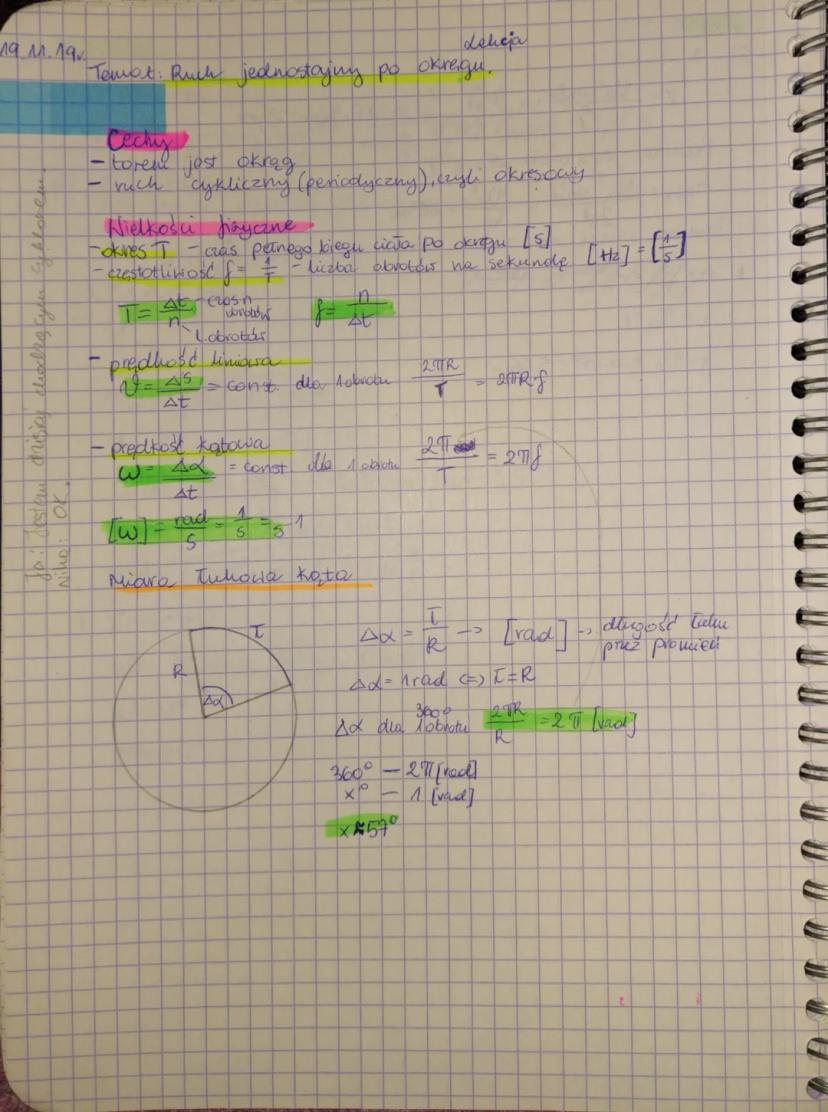 19.11.19r.
Lekcja
Temat: Ruch jednostajny po okręgu.
Cechy
- torem jest okrąg
- ruch cykliczny (periodyczny), czyli okresowy
Wielkości fizyczne
- okres T - czas pełnego biegu ciała po okręgu [s]
- częstotliwość f = 1/T - liczba obrotów na sekundę [Hz] = [1/s]
T = Δt/n czas n obrotów l. obrotów f = n/Δt
- prędkość liniowa
v = Δs/Δt = const. dla 1 obrotu 2πR/T = 2πR·f
- prędkość kątowa
ω = Δα/Δt = const dla 1 obrotu 2π/T = 2πf
[ω] = rad/s = 1/s = s-1
Miara łukowa kąta
Δα = Ł/R → [rad] → długość łuku
przez promień
Δα = 1rad <=> Ł=R
360°
Δα dla 1 obrotu 2πR/R = 2π [rad]
360° — 2π [rad]
x° — 1 [rad]
x≈57°
Ł
R
Δα
Ja: Jestem dzisiaj chodzącym cyklonem.
Niko: OK.